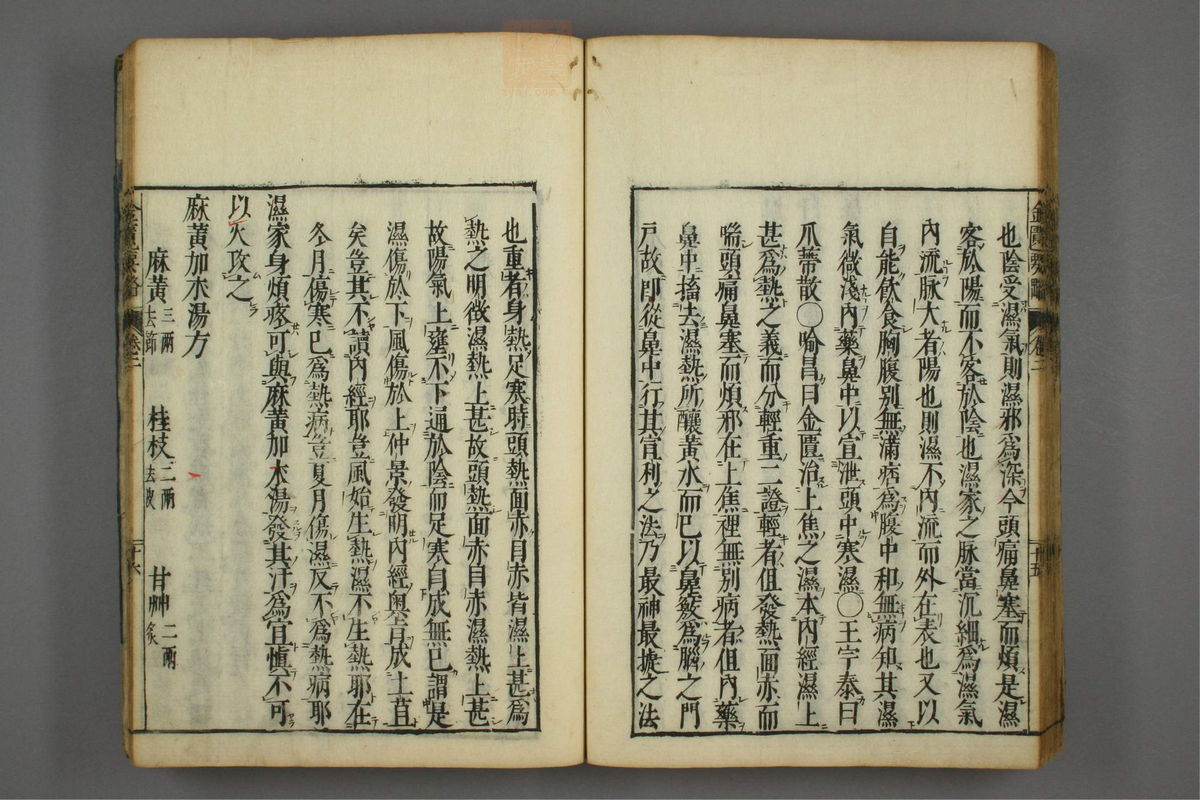 也陰受濕氣則濕邪為深今頭痛鼻塞而煩是濕
客於陽而不客於陰也濕家之脉當沉細為濕氣
內流脉大者陽也則濕不內流而外在表也又以
自能飲食胸腹別無滿痞為腹中和無病知其濕
氣微淺內藥鼻中以宣泄頭中寒濕〇王宇泰曰
瓜蒂散〇喻昌曰金匱治上焦之濕本內經濕上
甚為熱之義而分輕重二證輕者但發熱面赤而
喘頭痛鼻塞而煩邪在上焦裡無別病者但內藥
鼻中搐去濕熱所釀黃水而已以鼻竅為腦之門
戶故即從鼻中行其宣利之法乃最神最捷之法
十五
也重者身熱足寒時頭熱面赤目赤皆濕上甚為
熱之明徵濕熱上甚故頭熱面赤目赤濕熱上甚
故陽氣上壅不下通於陰而足寒自成無已謂是
濕傷於下風傷於上仲景發明內經奧旨成上苴
矣豈其不讀內經耶豈風始生熱濕不生熱耶在
冬月傷寒已為熱病豈夏月傷濕反不為熱病耶
濕家身煩疼可與麻黃加朮湯發其汗為宜慎不可
以火攻之
麻黃加朮湯方
麻黃三兩去節 桂枝二兩去皮 甘艸二兩炙
金匱要略 卷二 十六